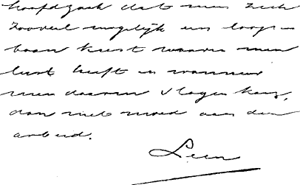 hoofdzaak dat men zich
zooveel mogelijk een loop-
baan kiest waarin men
lust heeft en wanneer
men daarin slagen kan,
dan niet moed aan den
arbeid.
Leen